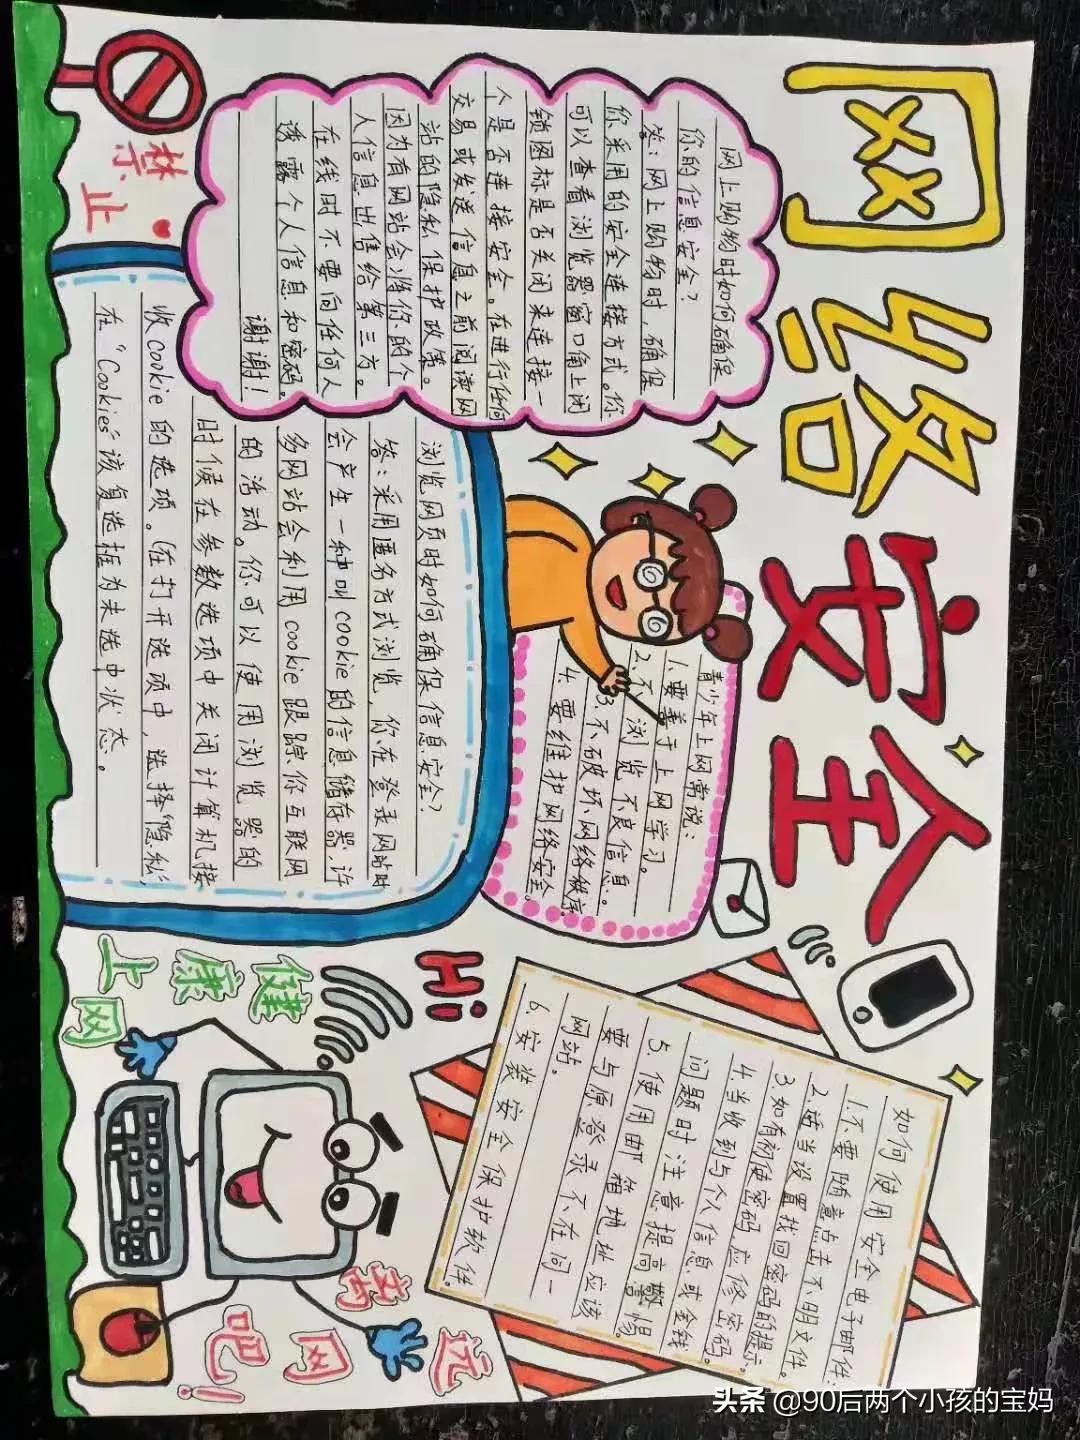 网络安全
禁止
网上购物时如何确保
你的信息安全?
答:网上购物时,确保
你采用的安全连接方式。你
可以查看浏览器窗口角上闭
锁图标是否关闭来连接一
人是否连接安全。在进行任何
交易或发送信息之前阅读网
站的隐私保护政策。
因为有网站会将你的个
人信息出售给第三方。
在线时不要向任何人
透露个人信息和密码。
谢谢!
浏览网页时如何确保信息安全?
答:采用匿名方式浏览,你在登录网站时
会产生一种叫cookie的信息储存器,许
多网站会利用cookie跟踪你互联网
的活动。你可以使用浏览器的
时候在参数选项中关闭计算机接
收cookie的选项。(在打开选项中,选择“隐私”,
在“Cookies”该复选框为未选中状态。
青少年上网常说:
1.要善于上网学习。
2.不浏览不良信息。
3.不破坏网络秩序
4.要维护网络安全。
如何使用安全电子邮件:
1.不要随意点击不明文件
2.适当设置找回密码的提示。
3.如有初使密码,应修密码。
4.当收到与个人信息或金钱
问题时注意提高警惕。
5.使用邮箱地址应该
要与原登录不在同一
网站。
6.安装安全保护软件。
Hi
健康上网
远离网吧!
头条 @90后两个小孩的宝妈